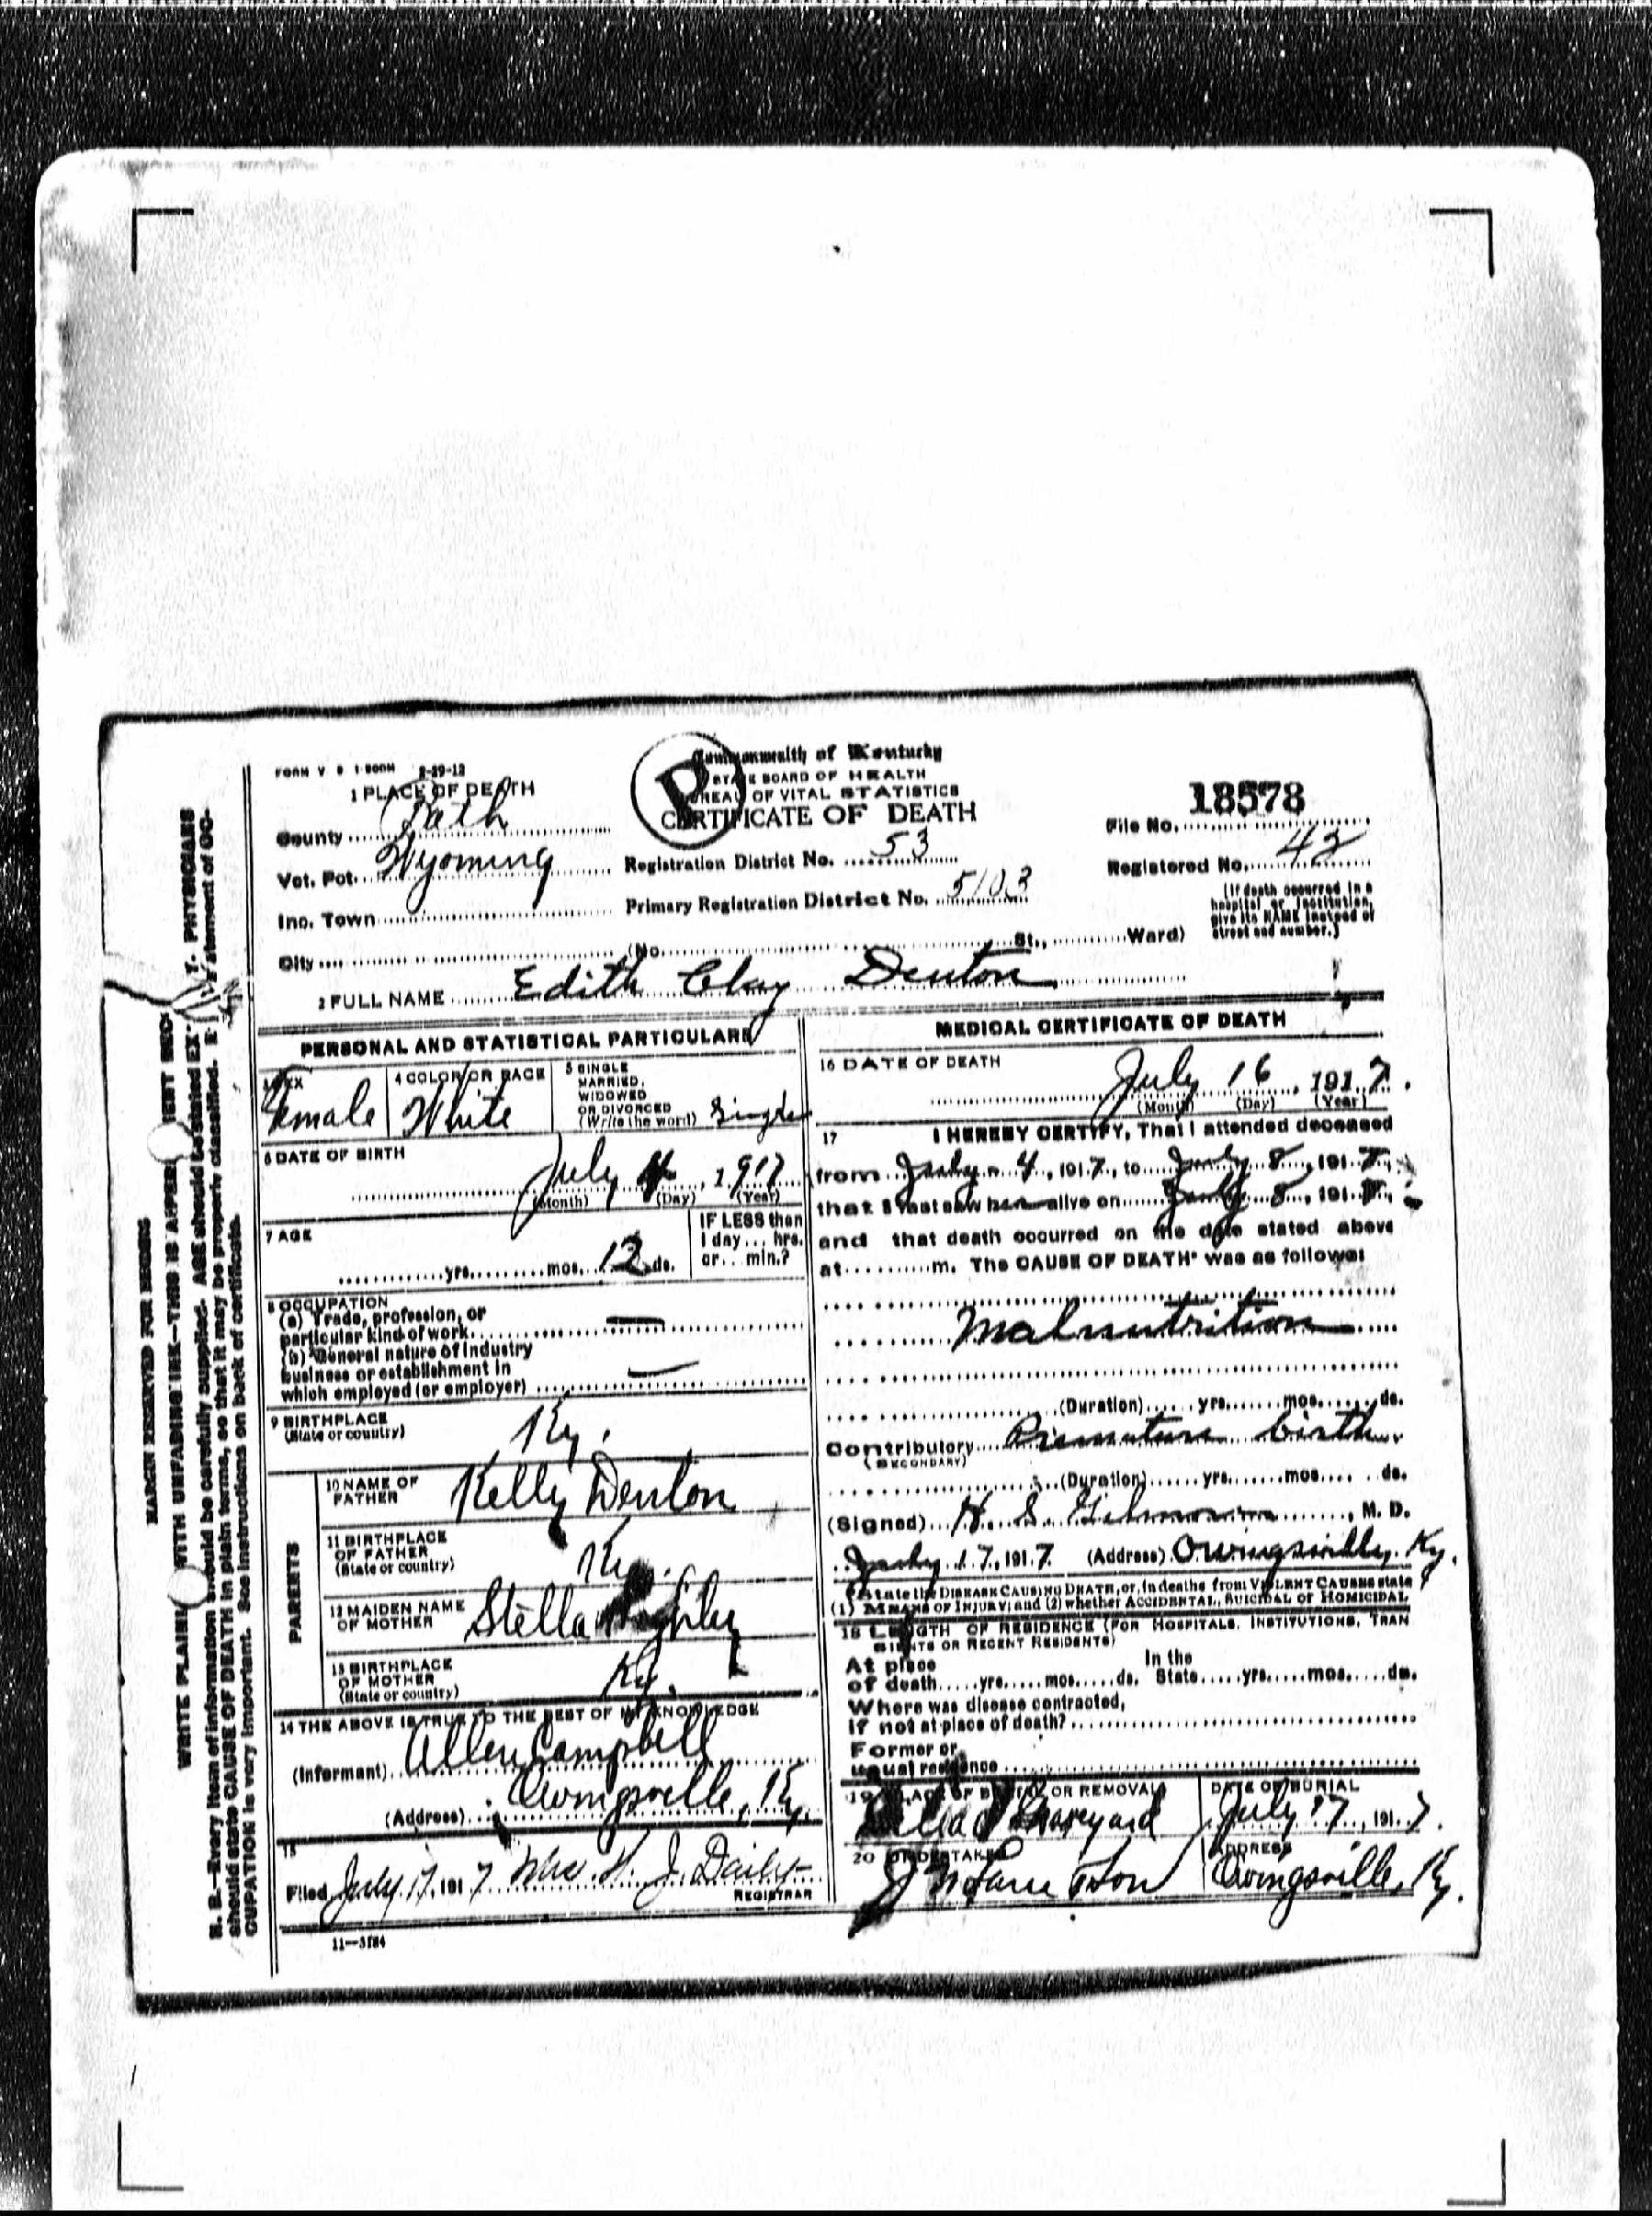 FORM V S 1-500M 8-29-12
Commonwealth of Kentucky
STATE BOARD OF HEALTH
BUREAU OF VITAL STATISTICS
CERTIFICATE OF DEATH
1 PLACE OF DEATH
County Bath
Vot. Pct. Wyoming
Inc. Town
City (No. St., Ward)
Registration District No. 53
Primary Registration District No. 5103
18578
File No.
Registered No. 42
(If death occurred in a
hospital or institution,
give its NAME instead of
street and number.)
2 FULL NAME Edith Clay Denton
PERSONAL AND STATISTICAL PARTICULARS
3 SEX
Female
4 COLOR OR RACE
White
5 SINGLE
MARRIED,
WIDOWED
OR DIVORCED
(Write the word) Single
6 DATE OF BIRTH
July 4, 1917
(Month) (Day) (Year)
7 AGE
yrs. mos. 12 ds.
IF LESS than
1 day... hrs.
or... min.?
8 OCCUPATION
(a) Trade, profession, or
particular kind of work —
(b) General nature of industry
business or establishment in
which employed (or employer) —
9 BIRTHPLACE
(State or country) Ky.
PARENTS
10 NAME OF
FATHER Kelly Denton
11 BIRTHPLACE
OF FATHER
(State or country) Ky.
12 MAIDEN NAME
OF MOTHER Stella
13 BIRTHPLACE
OF MOTHER
(State or country) Ky.
14 THE ABOVE IS TRUE TO THE BEST OF MY KNOWLEDGE
(Informant) Allen Campbell
(Address) Owingsville, Ky.
15
Filed July 17, 1917 Mrs. H. J. Daily
REGISTRAR
11—3184
MEDICAL CERTIFICATE OF DEATH
16 DATE OF DEATH
July 16, 1917.
(Month) (Day) (Year)
17 I HEREBY CERTIFY, That I attended deceased
from July 4, 1917, to July 8, 1917,
that I last saw her alive on July 8, 1917,
and that death occurred on the date stated above
at m. The CAUSE OF DEATH* was as follows:
Malnutrition
(Duration) yrs. mos. ds.
Contributory Premature birth
(SECONDARY)
(Duration) yrs. mos. ds.
(Signed) H. S. Gilmore, M. D.
July 17, 1917. (Address) Owingsville, Ky.
*State the DISEASE CAUSING DEATH, or, in deaths from VIOLENT CAUSES state
(1) MEANS OF INJURY; and (2) whether ACCIDENTAL, SUICIDAL or HOMICIDAL
18 LENGTH OF RESIDENCE (FOR HOSPITALS, INSTITUTIONS, TRAN
SIENTS OR RECENT RESIDENTS)
At place In the
of death yrs. mos. ds. State yrs. mos. ds.
Where was disease contracted,
if not at place of death?
Former or
usual residence
19 PLACE OF BURIAL OR REMOVAL
Graveyard
DATE OF BURIAL
July 17, 1917.
20 UNDERTAKER
Son
ADDRESS
Owingsville, Ky.
MARGIN RESERVED FOR BINDING
WRITE PLAINLY WITH UNFADING INK—THIS IS A
N. B.—Every item of information should be carefully supplied. AGE should be stated EX
PHYSICIANS
should state CAUSE OF DEATH in plain terms, so that it may be properly classified.
statement of OC-
CUPATION is very important. See instructions on back of certificate.